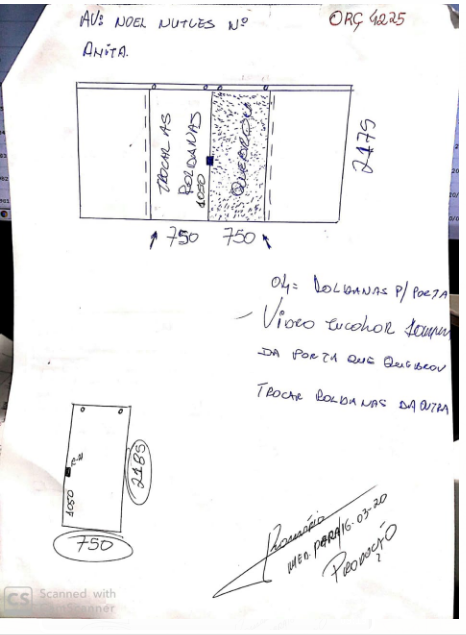 AV: NOEL NUTLES Nº
ORÇ 4225
ANITA.
TROCAR AS
ROLDANAS
1050
QUEBROU
2175
750 750
04= ROLDANAS P/ PORTA
- VIDRO INCOLOR
DA PORTA QUE QUEBROU
TROCAR ROLDANAS DA OUTRA
1050
2185
750
MED. PARA 16-03-20
PRODUÇÃO
CS Scanned with
CamScanner